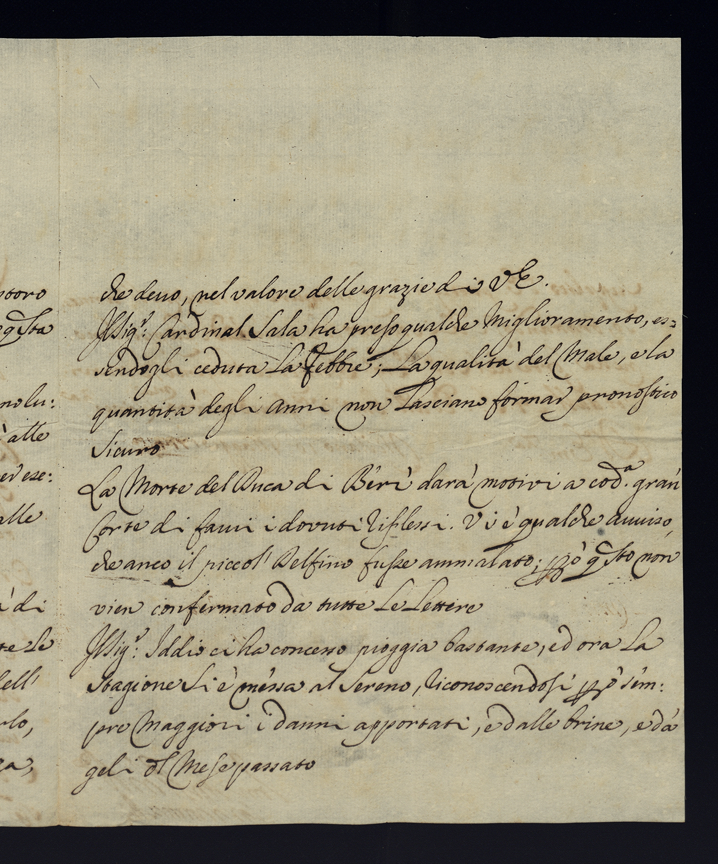 che devo, nel valore delle grazie di VE.
Il Sig.r Cardinal Sala ha preso qualche Miglioramento, es=
sendogli ceduta La febbre; La qualità del Male, e la
quantità degli anni non Lasciano formar pronostico
sicuro
La Morte del Duca di Berì darà motivi a cod.a gran
Corte di farvi i dovuti riflessi. Vi è qualche avviso,
che anco il piccol Delfino fusse ammalato; però q.sto non
vien confermato da tutte Le Lettere
Il Sig.r Iddio ci ha concesso pioggia bastante, ed ora La
Stagione si è messa al Sereno, riconoscendosi però sem:
pre Maggiori i danni apportati, e dalle brine, e da
geli del Mese passato
q.sta
nolu:
alle
er ese:
alle
à di
te le
dell'
rlo,